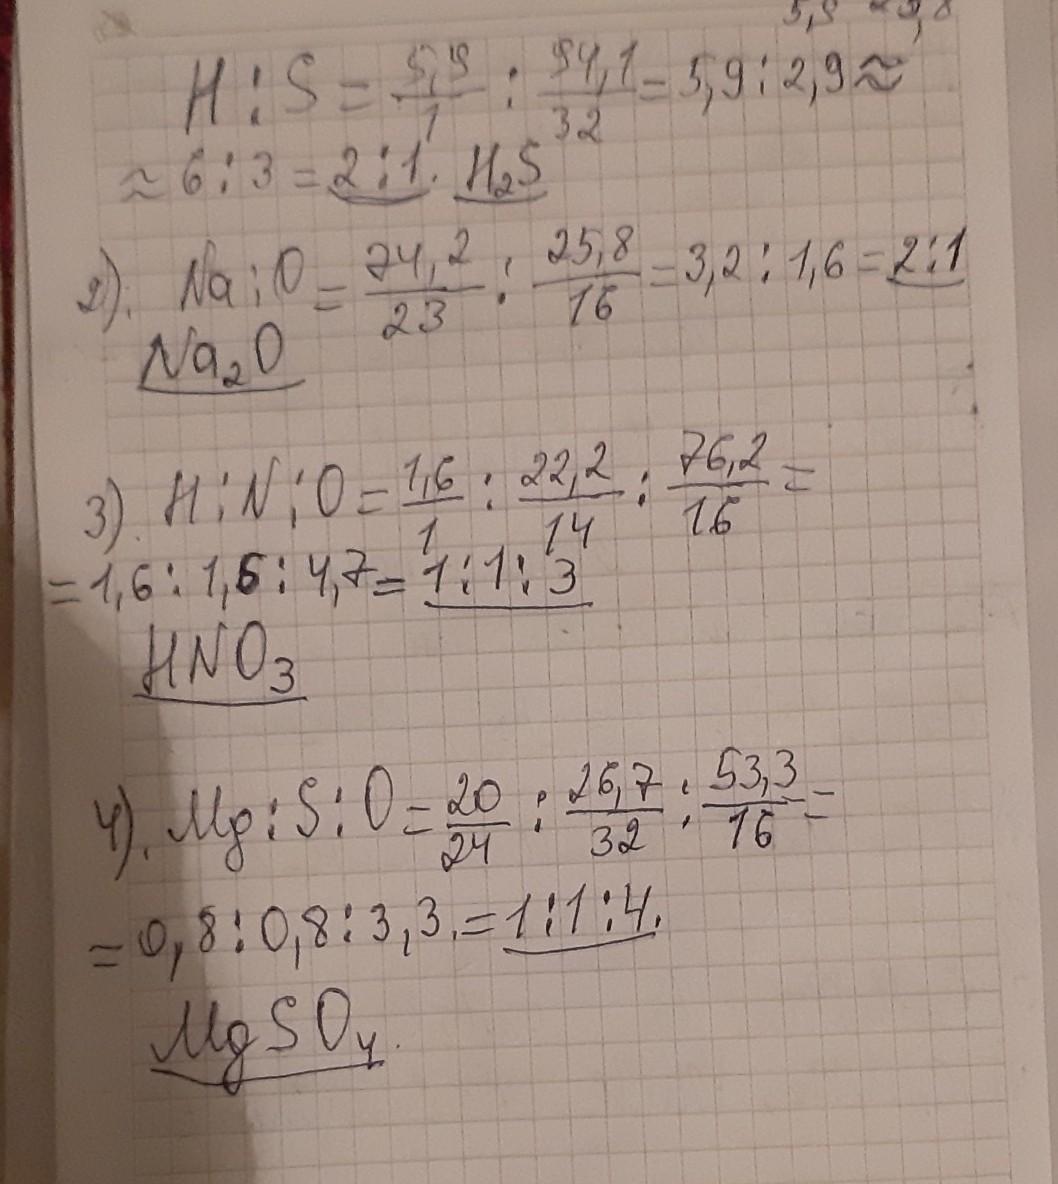 H : S = 5,9/1 : 94,1/32 = 5,9 : 2,9 ≈
≈ 6 : 3 = 2 : 1. H₂S
2). Na : O = 74,2/23 : 25,8/16 = 3,2 : 1,6 = 2 : 1
Na₂O
3). H : N : O = 1,6/1 : 22,2/14 : 76,2/16 =
= 1,6 : 1,6 : 4,7 = 1 : 1 : 3
HNO₃
4). Mg : S : O = 20/24 : 26,7/32 : 53,3/16 =
= 0,8 : 0,8 : 3,3. = 1 : 1 : 4.
MgSO₄.